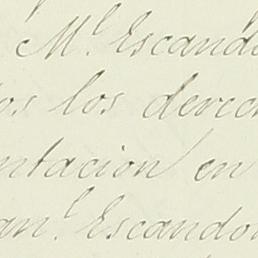 Ml. Escando
os los derec
ntacion en
anl. Escandon